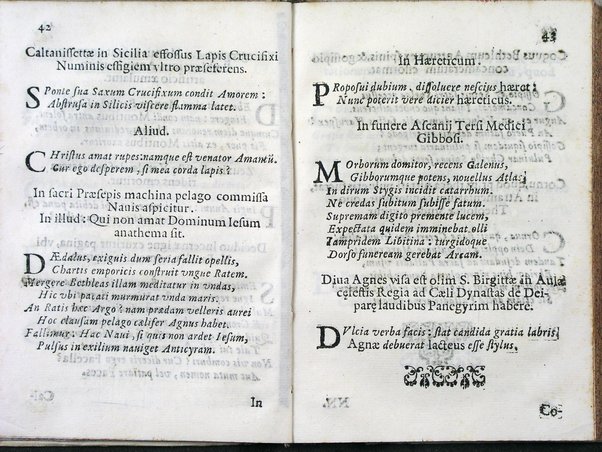 42
Caltanissettæ in Sicilia effossus Lapis Crucifixi
Numinis effigiem vltro præseferens.
SPonte sua Saxum Crucifixum condit Amorem:
Abstrusa in Silicis viscere flamma latet.
Aliud.
CHristus amat rupes: namque est venator Amantũ.
Cur ego desperem, si mea corda lapis?
In sacri Præsepis machina pelago commissa
Nauis aspicitur.
In illud: Qui non amat Dominum Iesum
anathema sit.
DÆdalus, exiguis dum seria fallit opellis,
Chartis emporicis construit vngue Ratem.
Mergere Bethleas illam meditatur in vndas,
Hic vbi pacati murmurat vnda maris.
An Ratis hæc Argo? nam prædam velleris aurei
Hoc clausam pelago califer Agnus habet.
Fallimur: Hac Naui, si quis non ardet Iesum,
Pulsus in exilium nauiget Anticyram.
In
43
In Hæreticum.
PRoposui dubium, dissoluere nescius hæret:
Nunc poterit vere dicier hæreticus.
In funere Ascanij Tersi Medici
Gibbosi.
MOrborum domitor, recens Galenus,
Gibborumque potens, nouellus Atlas,
In dirum Stygis incidit catarrhum.
Ne credas subitum subisse fatum.
Supremam digito premente lucem,
Expectata quidem imminebat olli
Iampridem Libitina: turgidoque
Dorso funeream gerebat Arcam.
Diua Agnes visa est olim S. Birgittæ in Aula
cælestis Regia ad Cæli Dynastas de Dei-
paræ laudibus Panegyrim habere.
DVlcia verba facis: stat candida gratia labris:
Agnæ debuerat lacteus esse stylus,
Co-